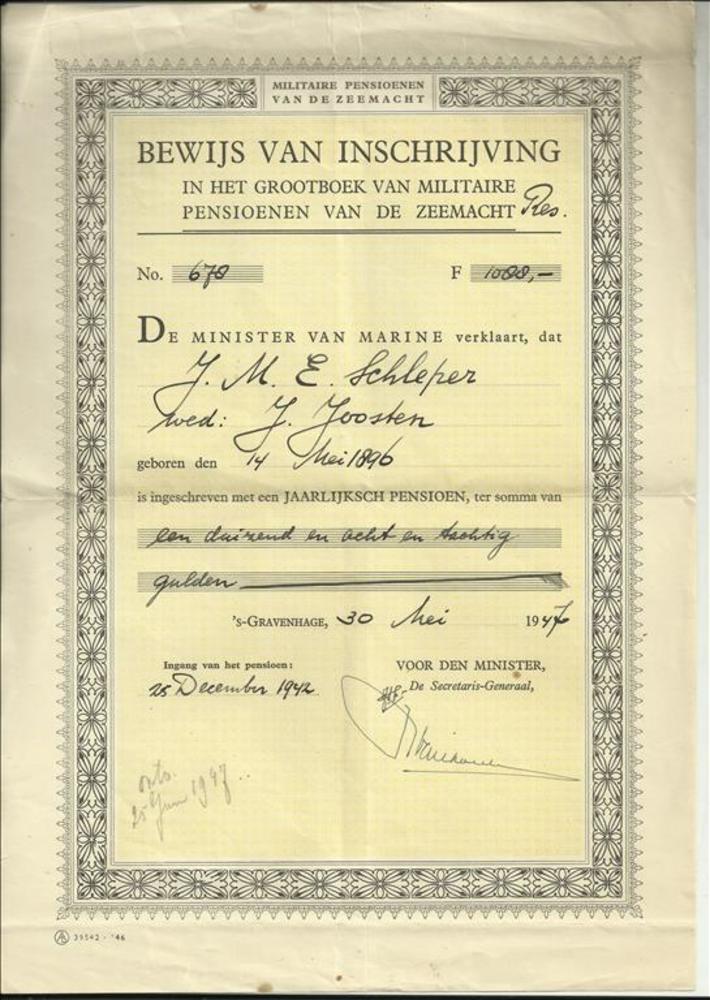 MILITAIRE PENSIOENEN
VAN DE ZEEMACHT
BEWIJS VAN INSCHRIJVING
IN HET GROOTBOEK VAN MILITAIRE
PENSIOENEN VAN DE ZEEMACHT Res.
No. 678 F 1088,–
DE MINISTER VAN MARINE verklaart, dat
J. M. E. Schleper
wed: J. Joosten
geboren den 14 Mei 1896
is ingeschreven met een JAARLIJKSCH PENSIOEN, ter somma van
een duizend en acht en tachtig
gulden
's-GRAVENHAGE, 30 Mei 1947
Ingang van het pensioen: VOOR DEN MINISTER,
25 December 1942 De Secretaris-Generaal,
ontv.
25 Juni 1947
39542 - '46